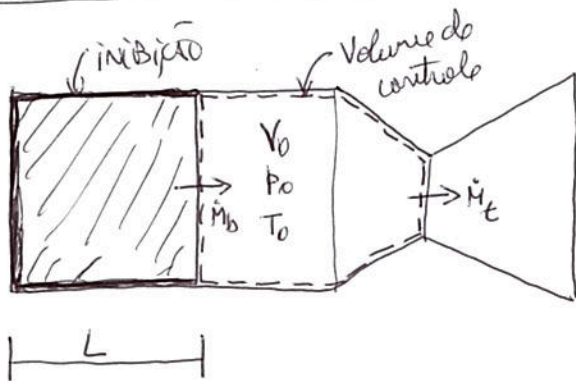 INIBIÇÃO
Volume de
controle
V₀
P₀
T₀
Ṁb
Ṁt
L